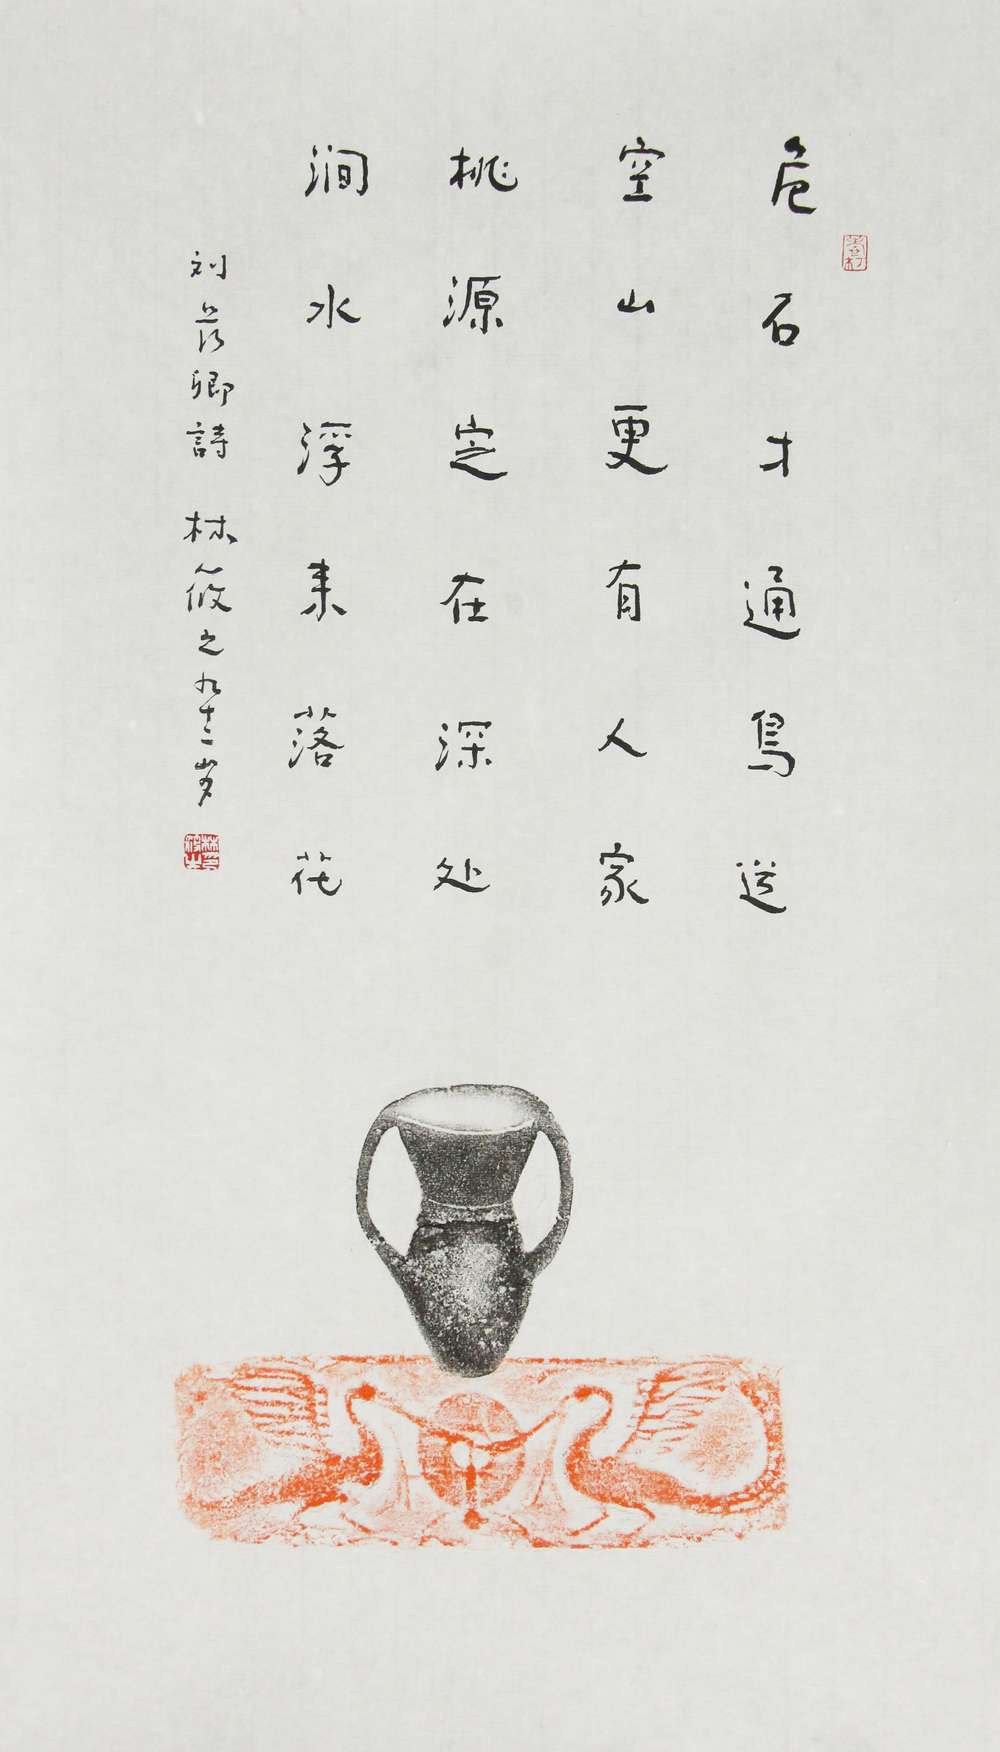 危石才通鳥道
空山更有人家
桃源定在深处
涧水浮来落花
刘长卿詩 林筱之九十二岁
林筱之印